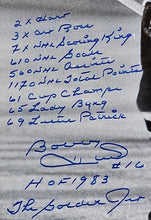 2x Hart
3x Art Ross
7x NHL Scoring King
610 NHL Goals
560 NHL Assists
1170 NHL Total Points
61 Cup Champs
65 Lady Byng
69 Lester Patrick
Bobby Hull
#16
HOF 1983
The Golden Jet